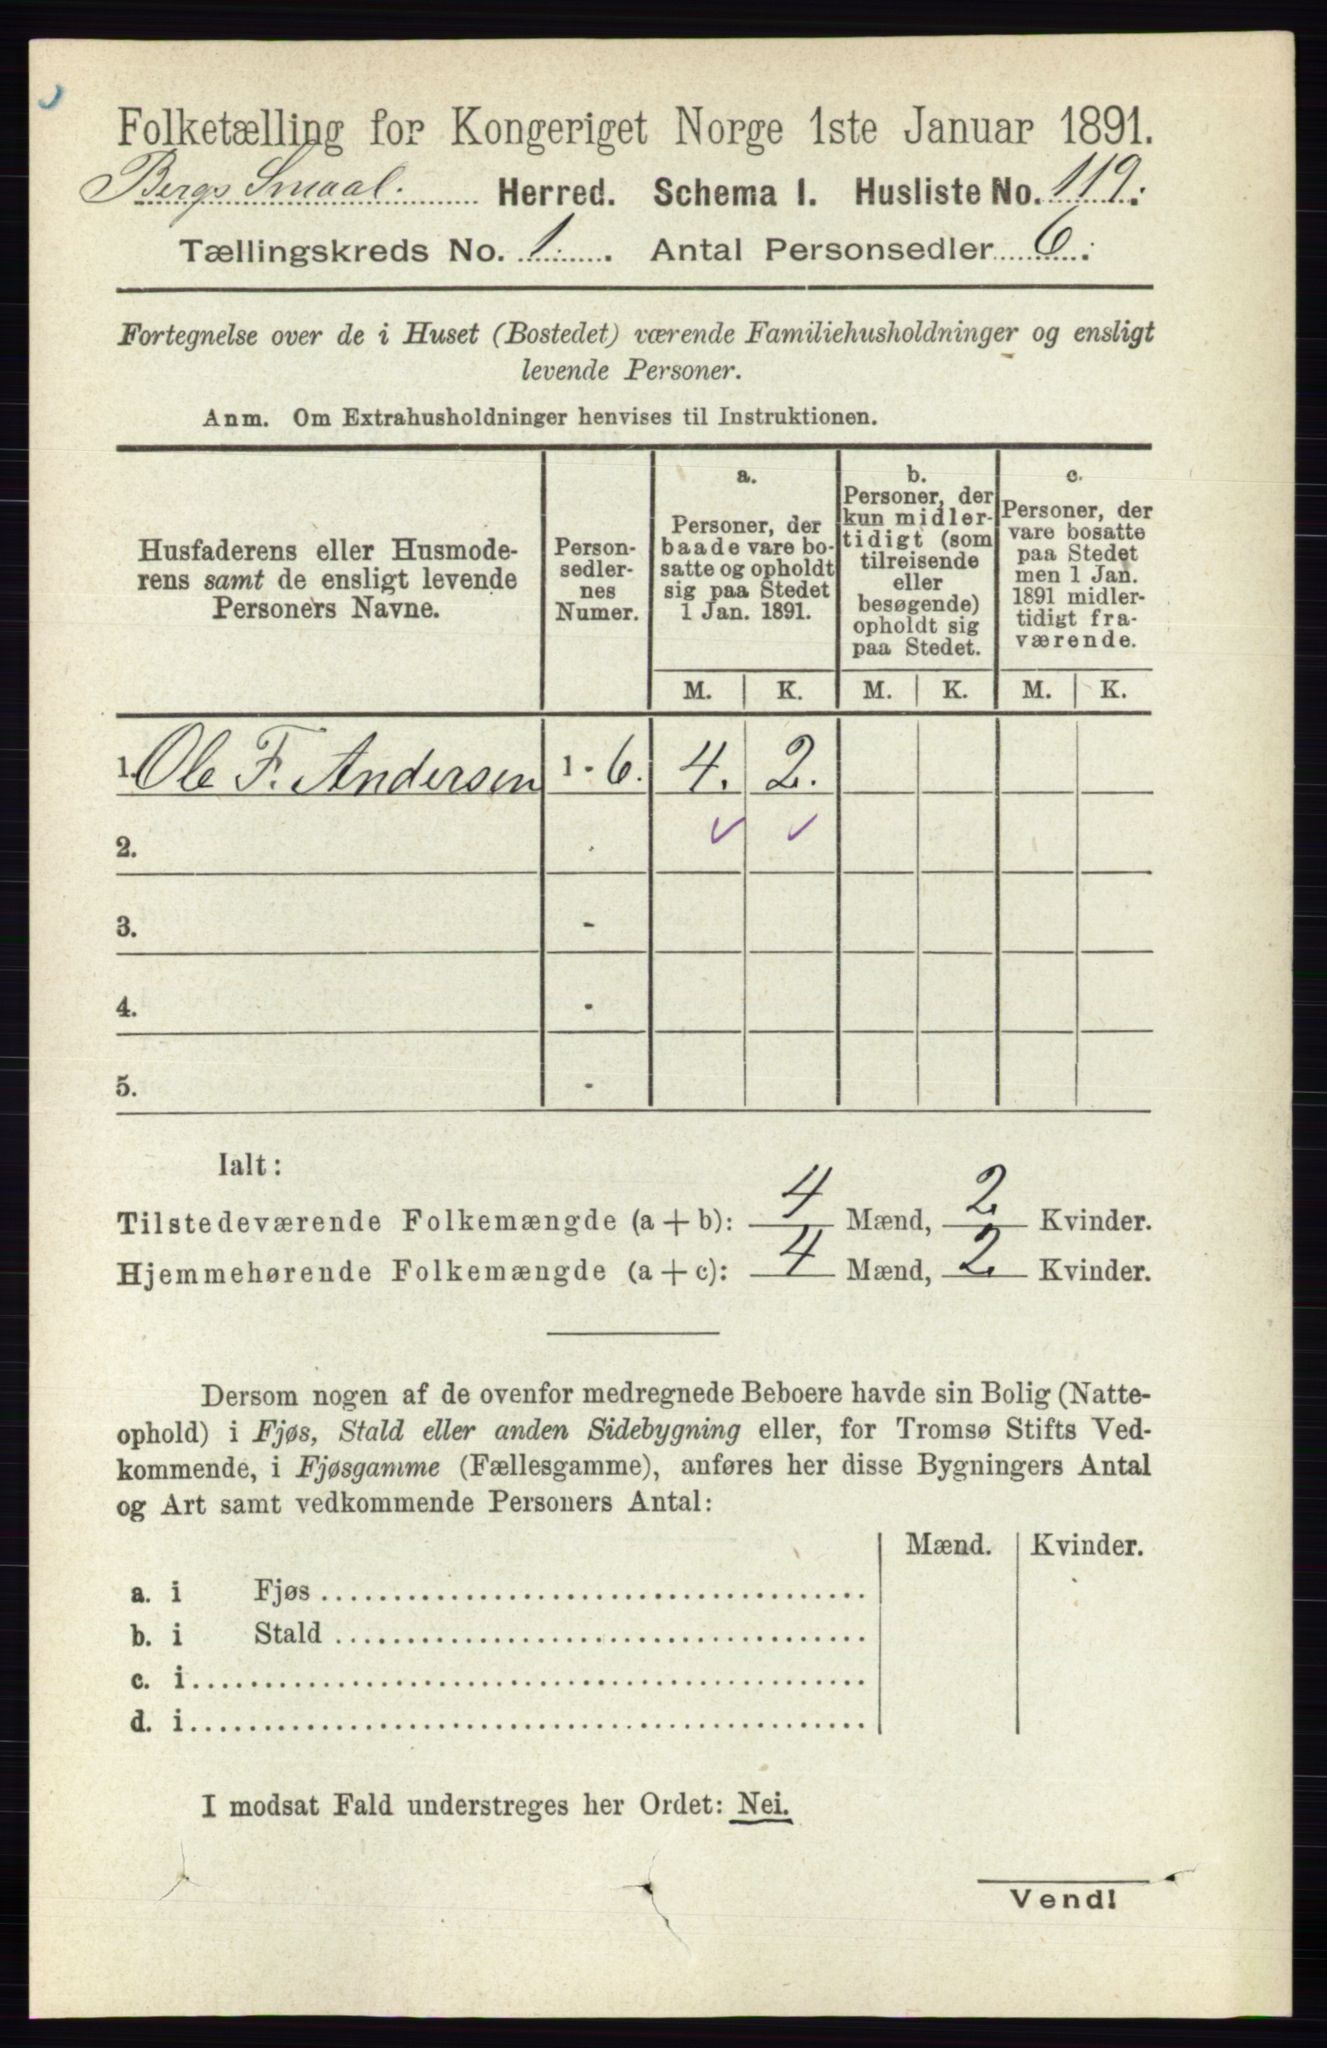 Folketælling for Kongeriget Norge 1ste Januar 1891.
Bergs Smaal. Herred. Schema I. Husliste No. 119.
Tællingskreds No. 1. Antal Personsedler 6.
Fortegnelse over de i Huset (Bostedet) værende Familiehusholdninger og ensligt
levende Personer.
Anm. Om Extrahusholdninger henvises til Instruktionen.
Husfaderens eller Husmode-
rens samt de ensligt levende
Personers Navne.
Person-
sedler-
nes
Numer.
a.
Personer, der
baade vare bo-
satte og opholdt
sig paa Stedet
1 Jan. 1891.
b.
Personer, der
kun midler-
tidigt (som
tilreisende
eller
besøgende)
opholdt sig
paa Stedet.
c.
Personer, der
vare bosatte
paa Stedet
men 1 Jan.
1891 midler-
tidigt fra-
værende.
M. K. M. K. M. K.
1. Ole F. Andersen 1 - 6. 4. 2.
2. ✓ ✓
3. -
4. -
5. -
Ialt:
Tilstedeværende Folkemængde (a + b): 4 Mænd, 2. Kvinder.
Hjemmehørende Folkemængde (a + c): 4 Mænd, 2. Kvinder.
Dersom nogen af de ovenfor medregnede Beboere havde sin Bolig (Natte-
ophold) i Fjøs, Stald eller anden Sidebygning eller, for Tromsø Stifts Ved-
kommende, i Fjøsgamme (Fællesgamme), anføres her disse Bygningers Antal
og Art samt vedkommende Personers Antal:
Mænd. Kvinder.
a. i Fjøs
b. i Stald
c. i
d. i
I modsat Fald understreges her Ordet: Nei.
Vend!